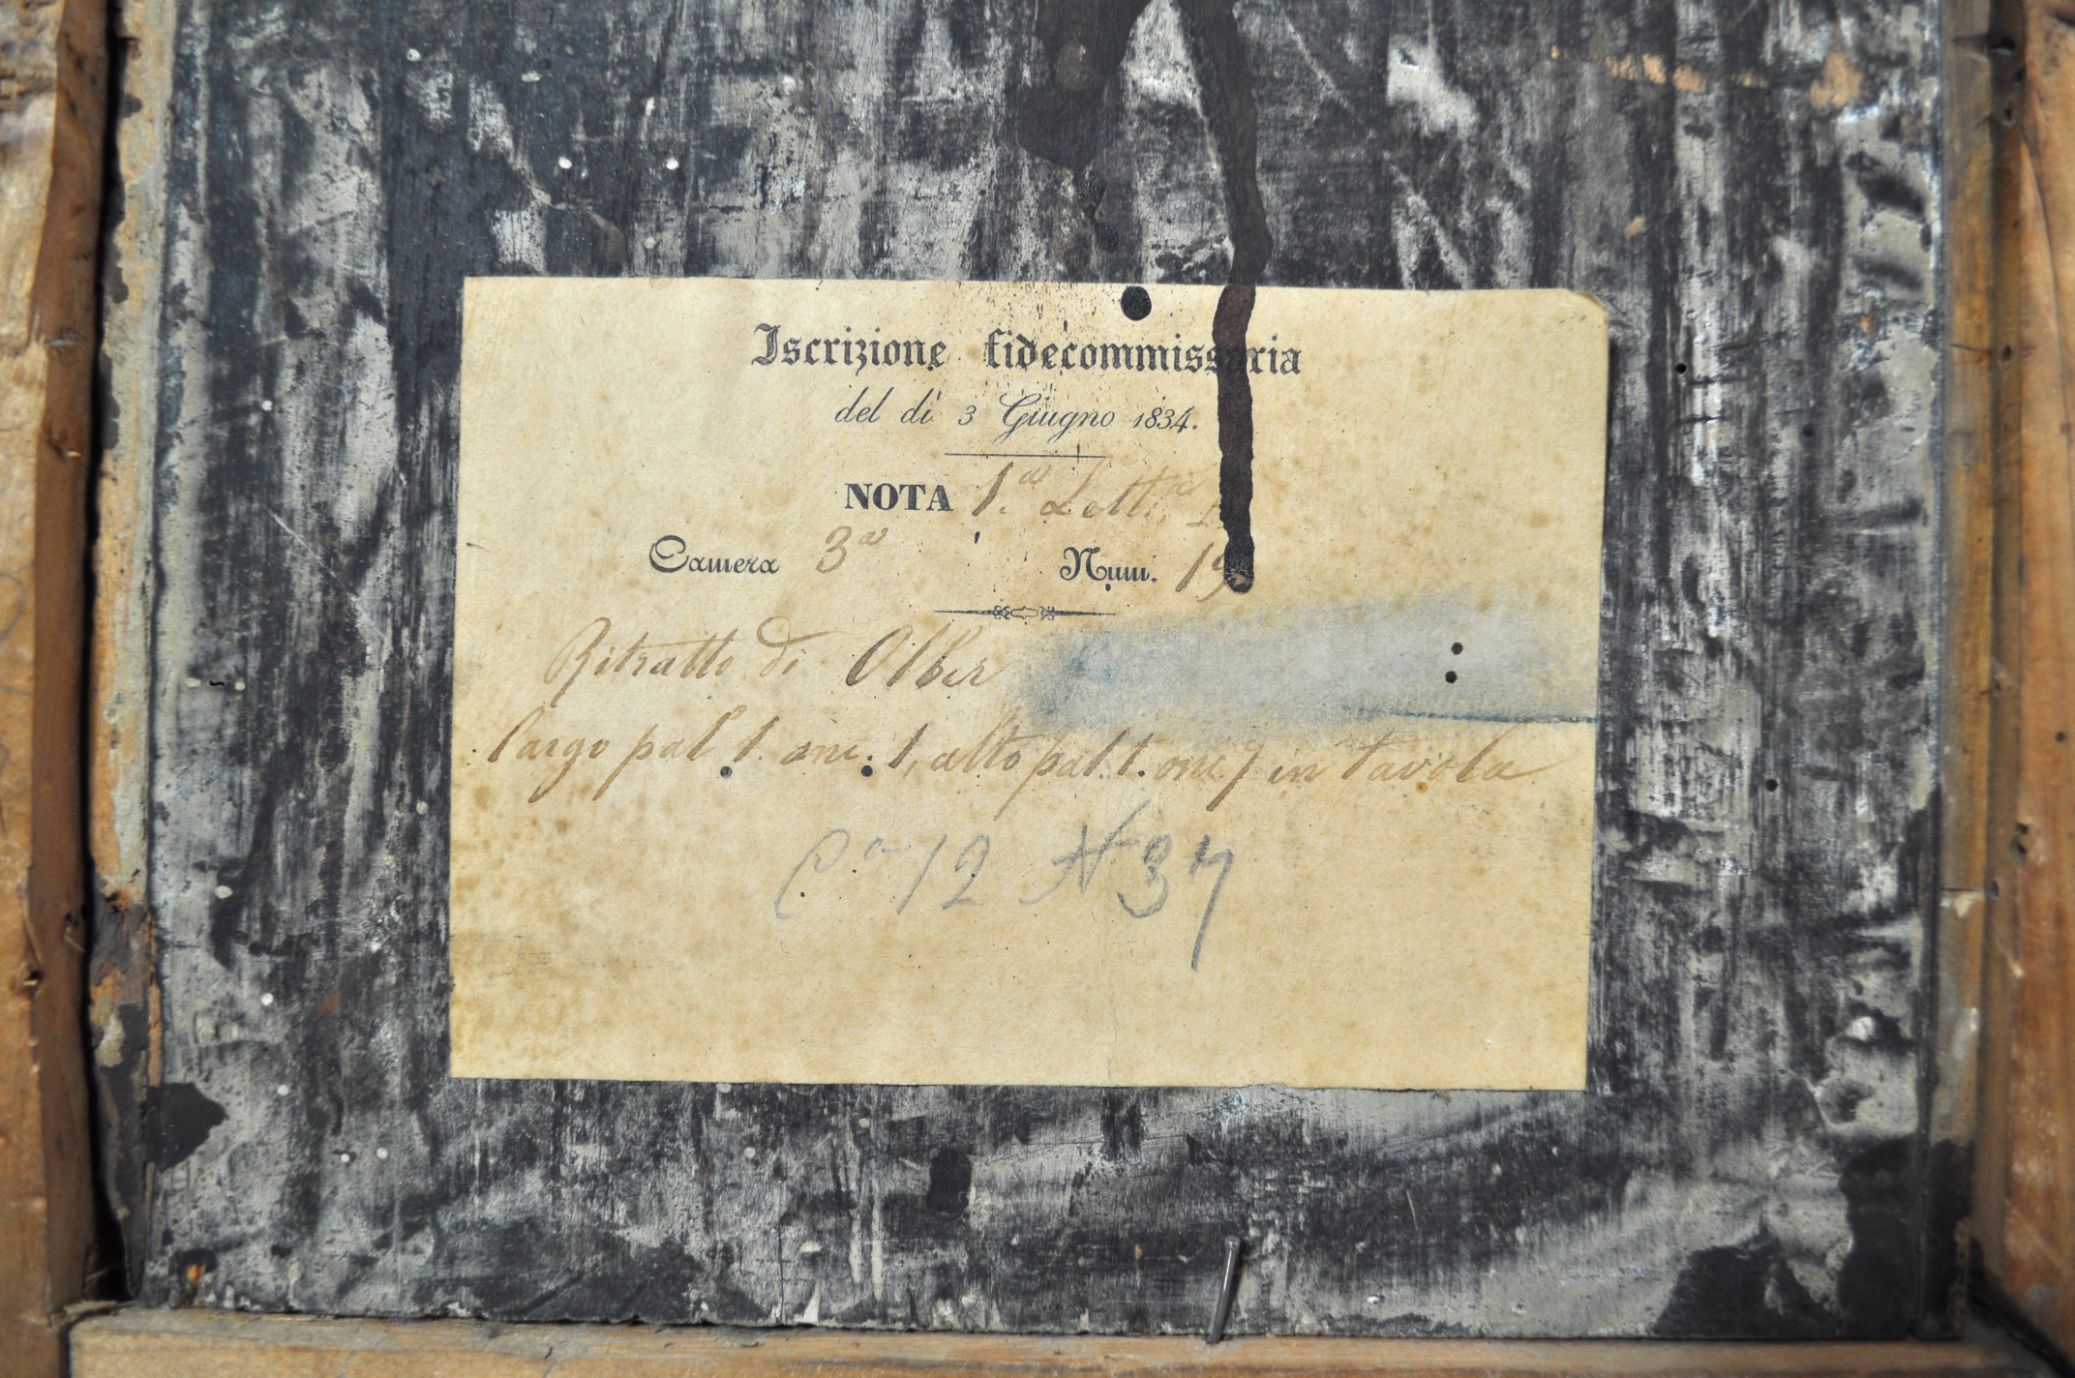 Iscrizione fidecommissaria
del di 3 Giugno 1834.
NOTA 1.a Lett.a
Camera 3a Num. 19
Ritratto di Olber
largo pal 1. onc. 1, alto pal. 1. onc. 7 in tavola
Ca 12 N 37